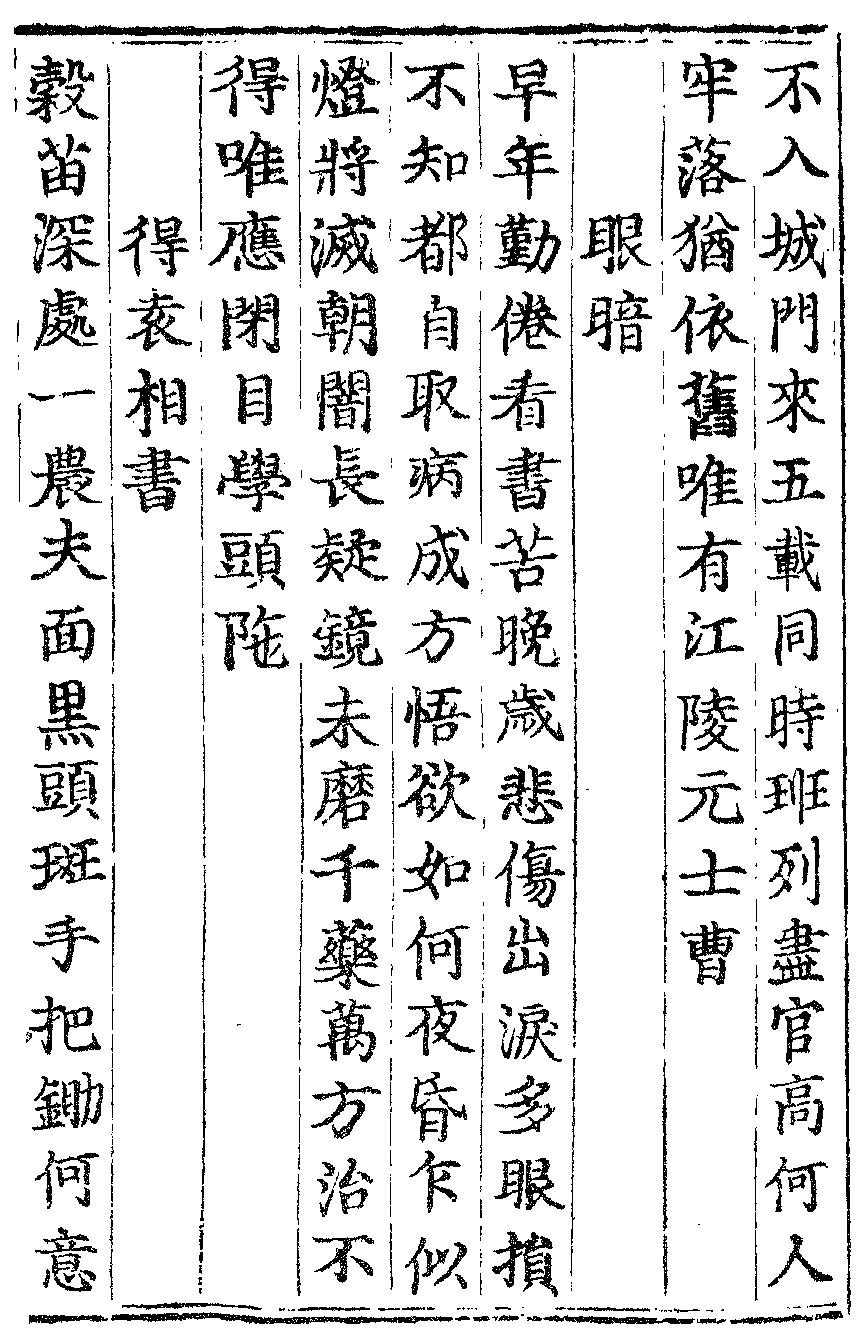 不入城門來五載同時班列盡官高何人
牢落猶依舊唯有江陵元士曹
眼暗
早年勤倦看書苦晚歲悲傷出淚多眼損
不知都自取病成方悟欲如何夜昏乍似
燈將滅朝闇長疑鏡未磨千藥萬方治不
得唯應閉目學頭陁
得袁相書
穀苗深處一農夫面黑頭斑手把鋤何意